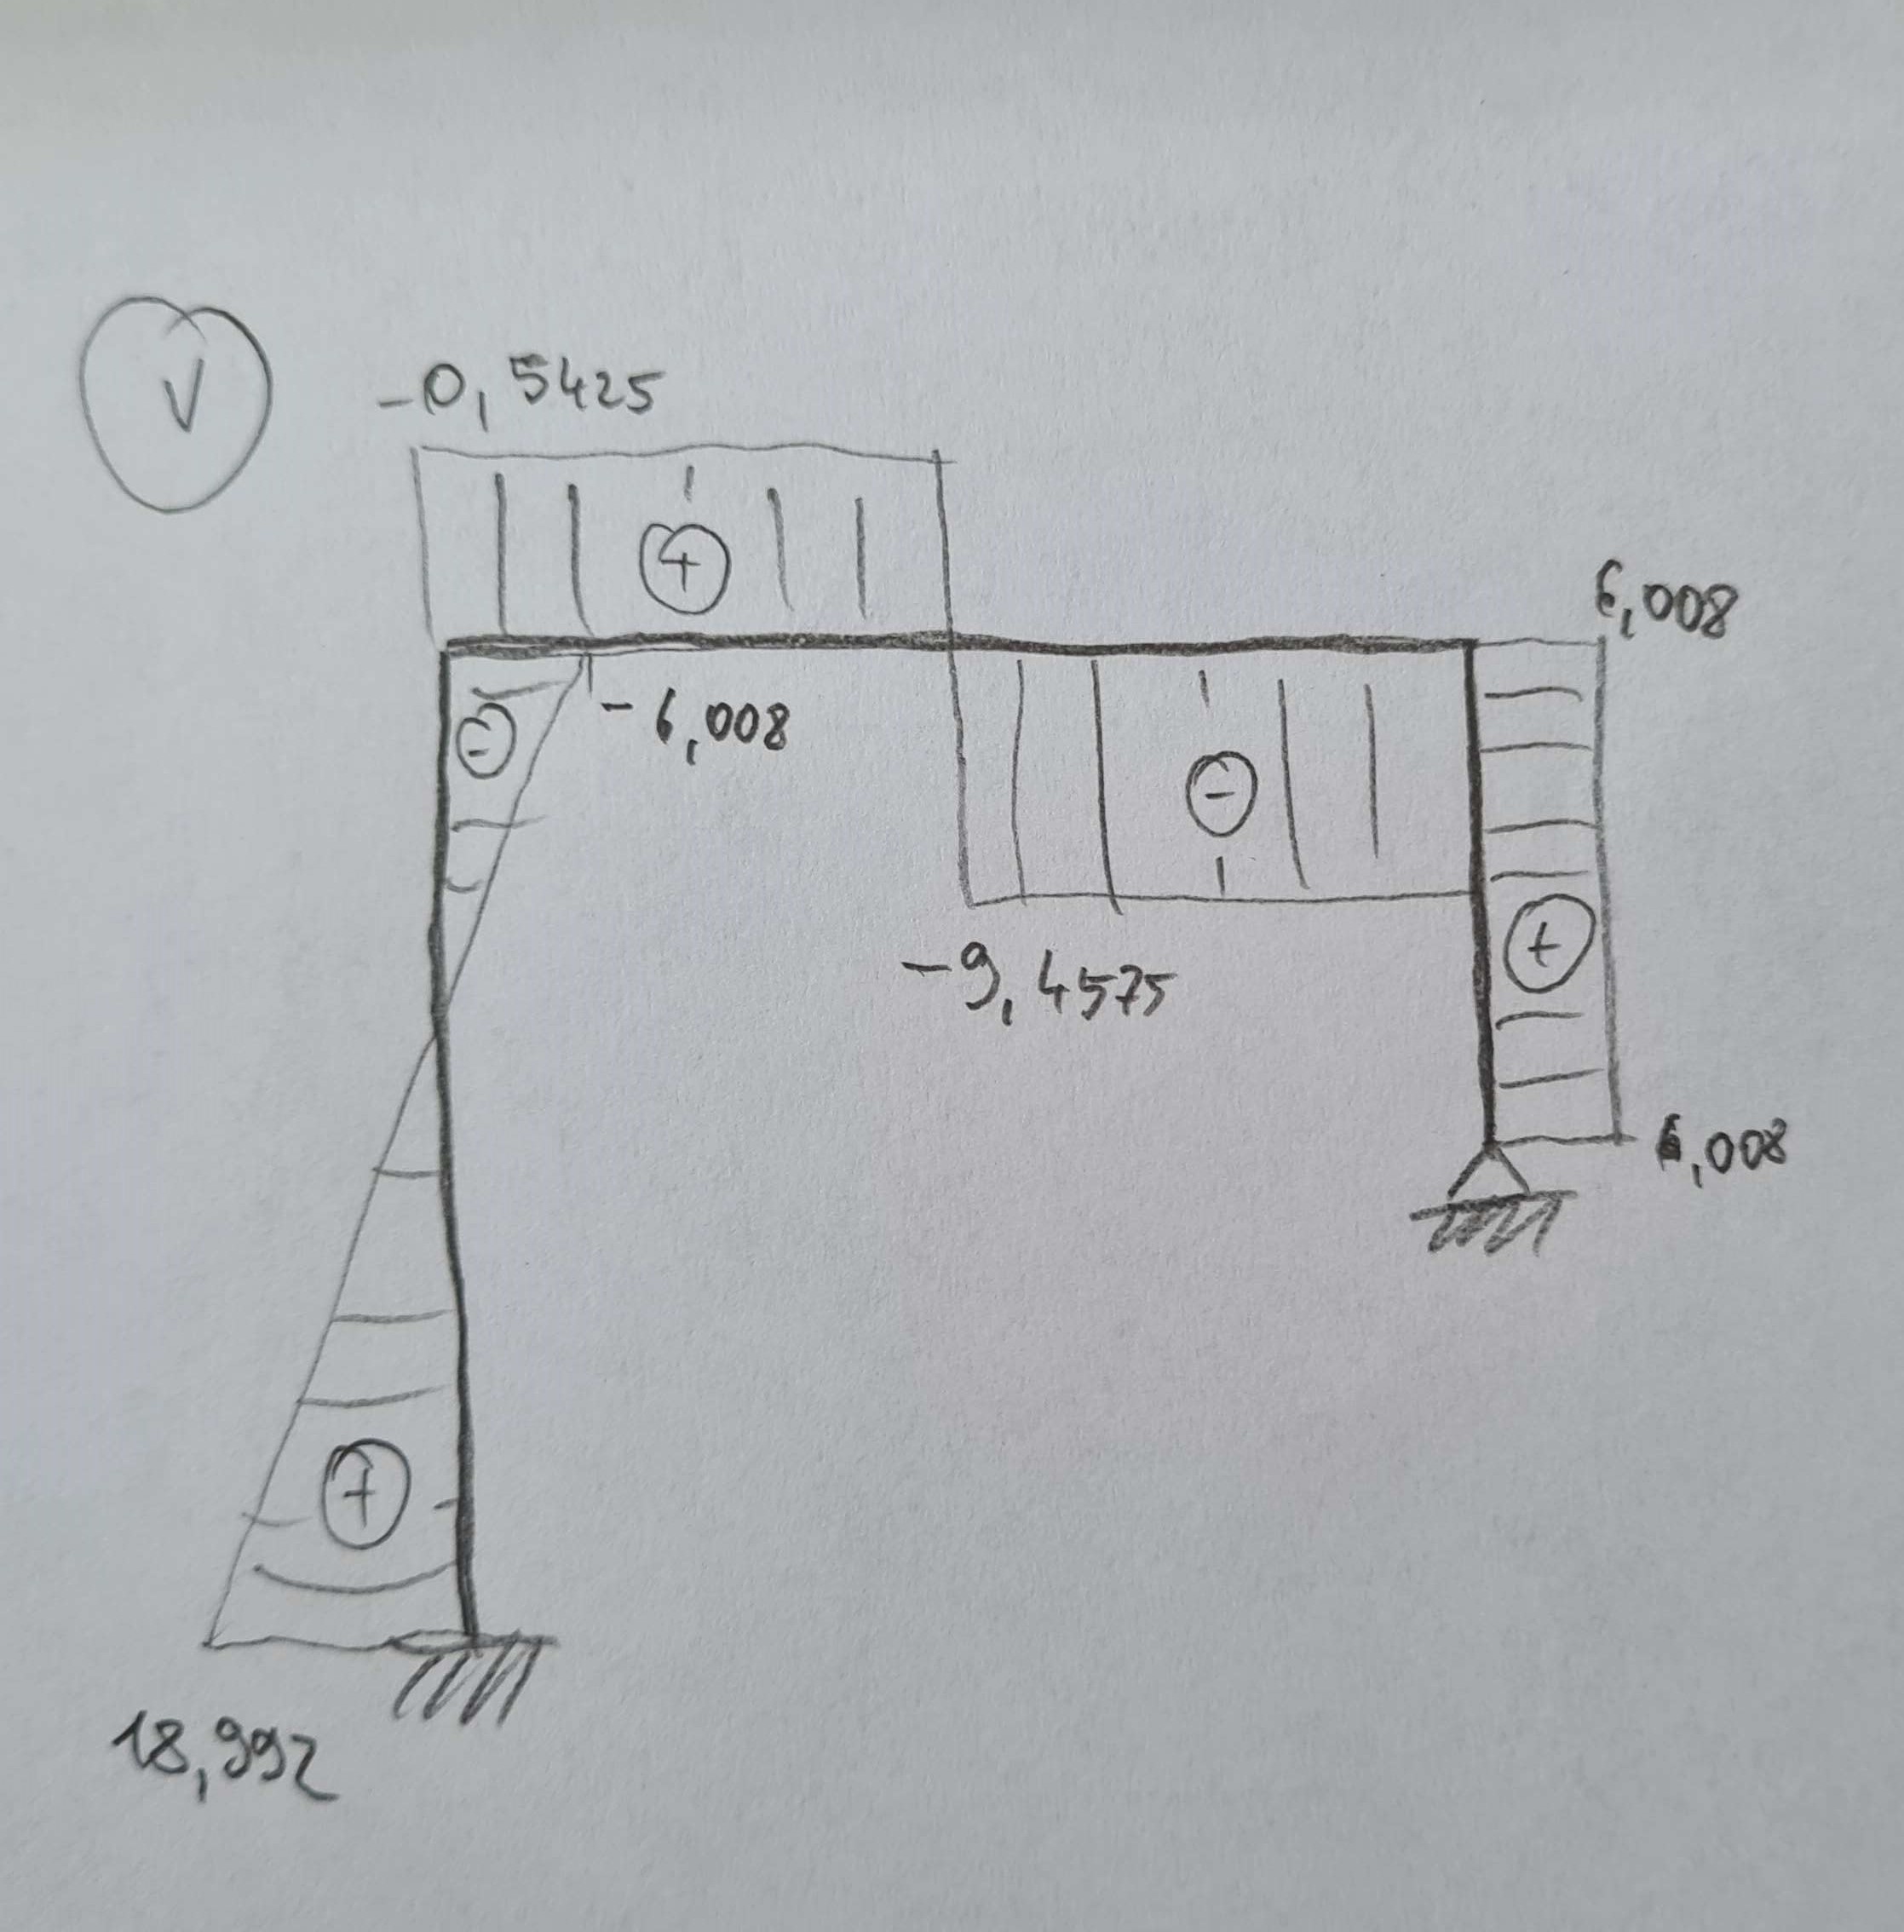 V
-0,5425
+
6,008
-
-6,008
-
-9,4575
+
6,008
+
18,992